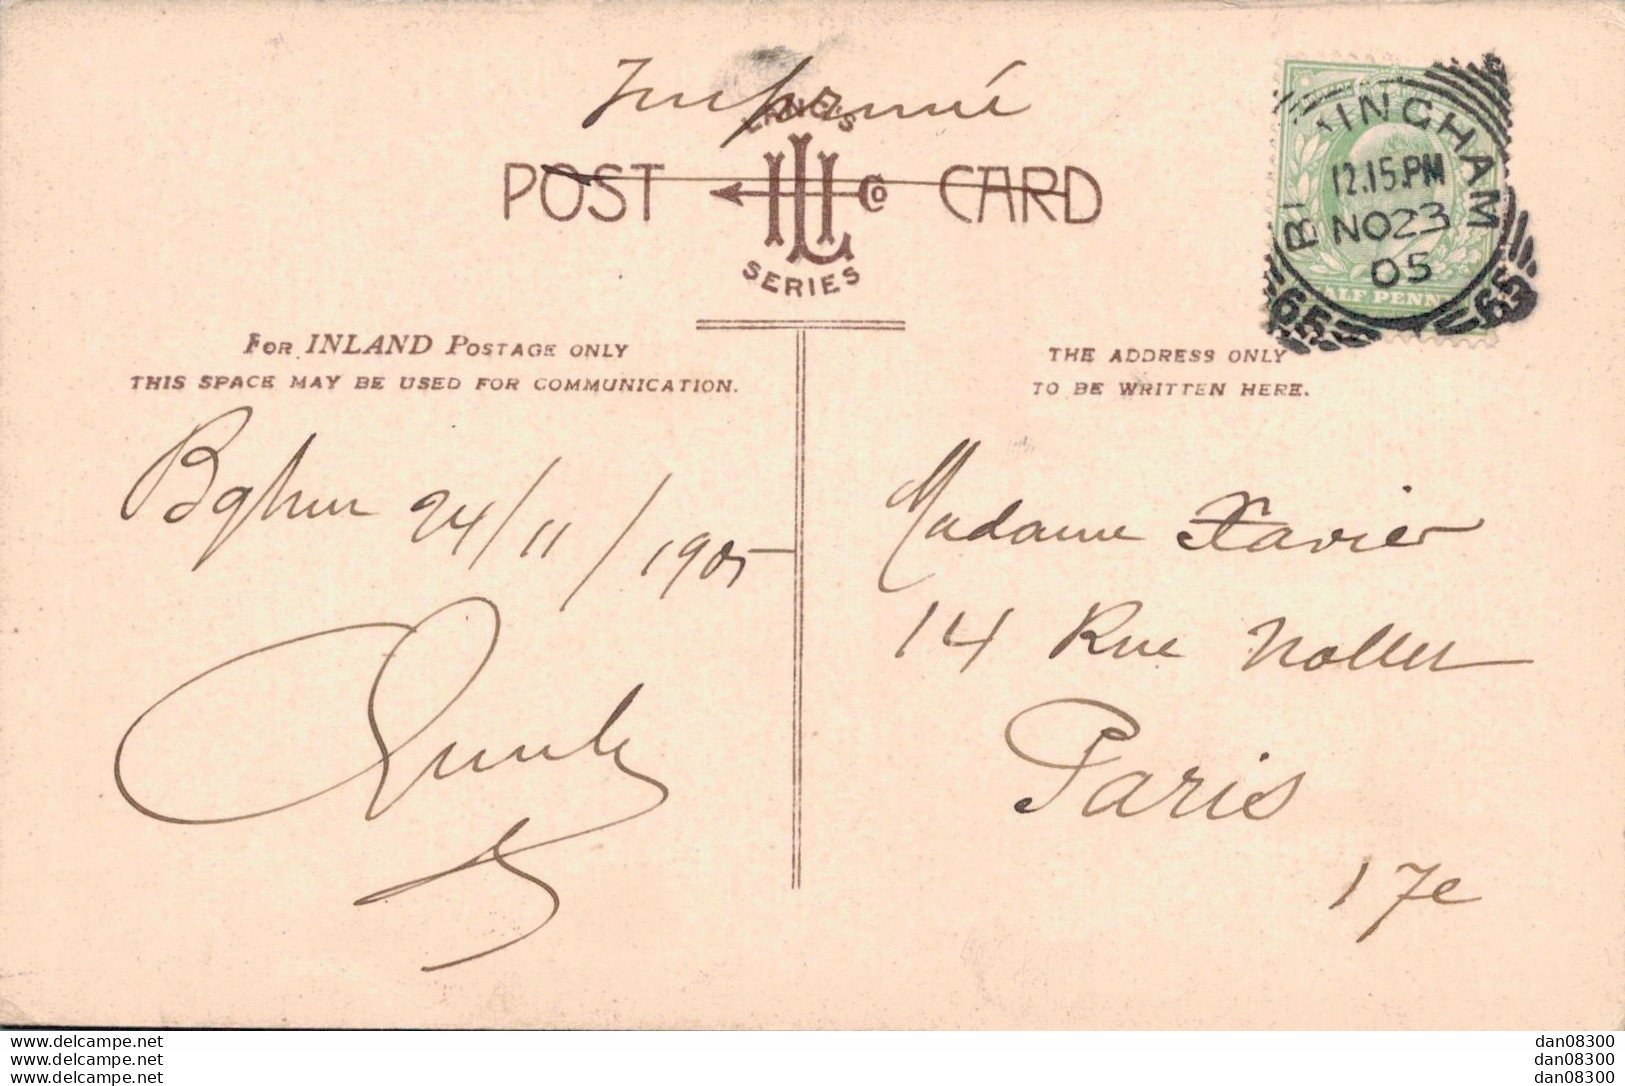 Imprimé
LANG'S
POST CARD
LL Co
SERIES
BI MINGHAM
12.15.PM
NO 23
05
65 65
HALF PENNY
FOR INLAND POSTAGE ONLY
THIS SPACE MAY BE USED FOR COMMUNICATION.
THE ADDRESS ONLY
TO BE WRITTEN HERE.
Bghm 24/11/1905
Madame Xavier
14 Rue Nollet
Paris
17e
www.delcampe.net
www.delcampe.net
www.delcampe.net
dan08300
dan08300
dan08300